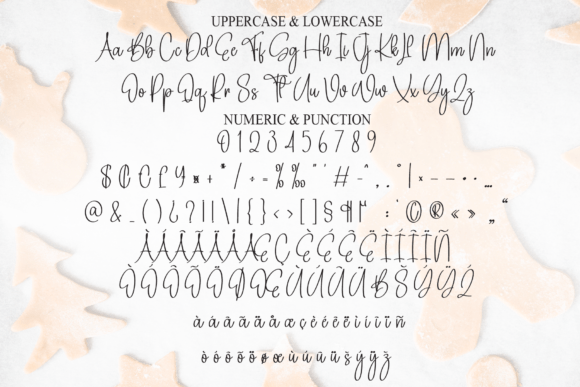 UPPERCASE & LOWERCASE
Aa Bb Cc Dd Ee Ff Gg Hh Ii Jj Kk Ll Mm Nn
Oo Pp Qq Rr Ss Tt Uu Vv Ww Xx Yy Zz
NUMERIC & PUNCTION
0 1 2 3 4 5 6 7 8 9
$ ¢ £ ¥ * + / ÷ = % ‰ " ' # - ^ , . ° | × – — • · …
@ & _ ( ) ¿ ? ! | \ | { } < > [ ] § ¶ : ' © ® « » „ “
À Á Â Ã Ä Å Æ Ç È É Ê Ë Ì Í Î Ï Ñ
Ò Ó Ô Õ Ö Ø Œ Ù Ú Û Ü ß Š Ý Ÿ Ž
à á â ã ä å æ ç è é ê ë ì í î ï ñ
ò ó ô õ ö ø œ ù ú û ü š ý ÿ ž